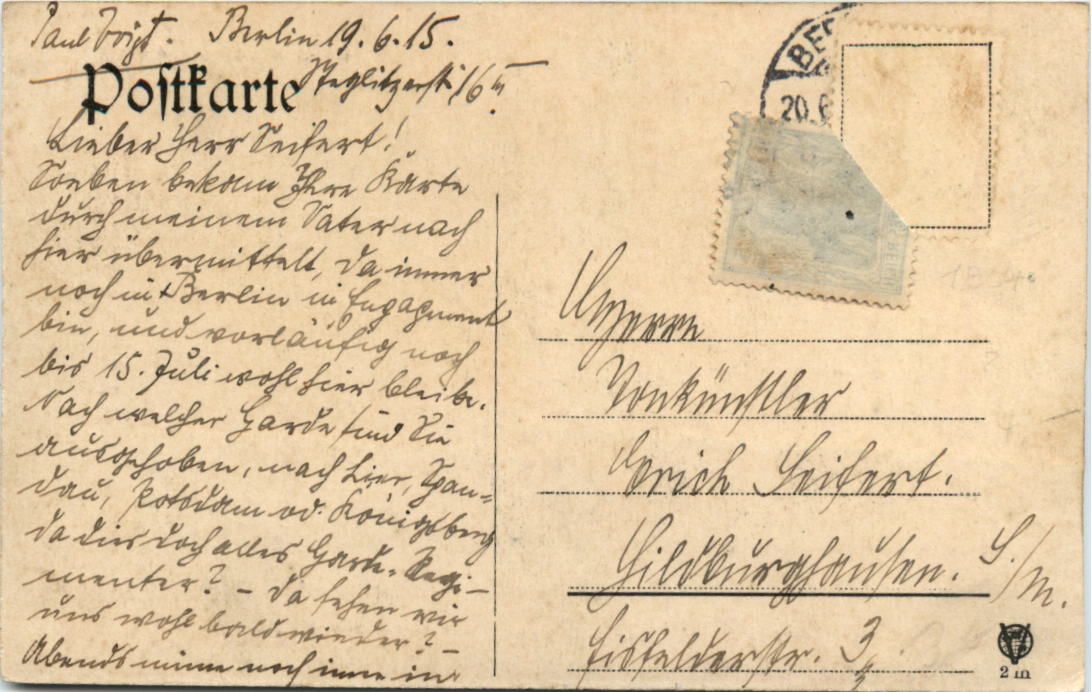 Paul Voigt. Berlin 19.6.15.
Steglitzerstr. 16 III
Postkarte
Lieber Herr Seifert!
Soeben bekam Ihre Karte
durch meinem Vater nach
hier übermittelt, da immer
noch in Berlin in Engagement
bin, und vorläufig noch
bis 15. Juli wohl hier bleibe.
Nach welcher Garde sind Sie
ausgehoben, nach hier, Span-
dau, Potsdam od. Königsberg
da dies doch alles Garde-Regi-
menter? – Da sehen wir
uns wohl bald wieder? –
Abends noch in
BER
20.6
Herrn
Tonkünstler
Erich Seifert.
Hildburghausen. S./M.
Eisfelderstr. 3
2 m